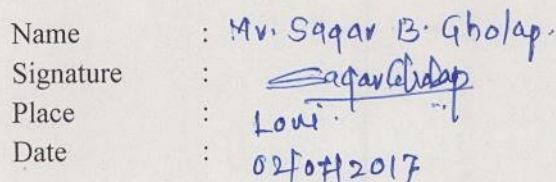 Name : Mr. Sagar B. Gholap.
Signature : SagarGholap
Place : Loni.
Date : 02/07/2017